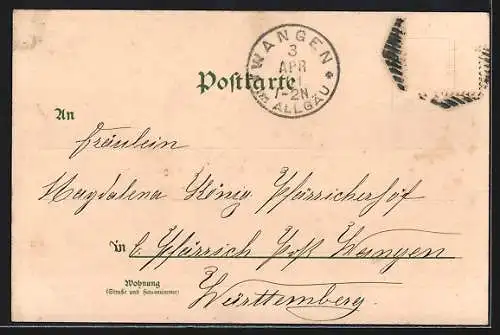 WANGEN
3
APR
1-2N.
ALLGÄU
Postkarte
An
Fräulein
Magdalena König Pfärricherhof
In b. Pfärrich Post Wangen
Wohnung
(Straße und Hausnummer)
Württemberg.